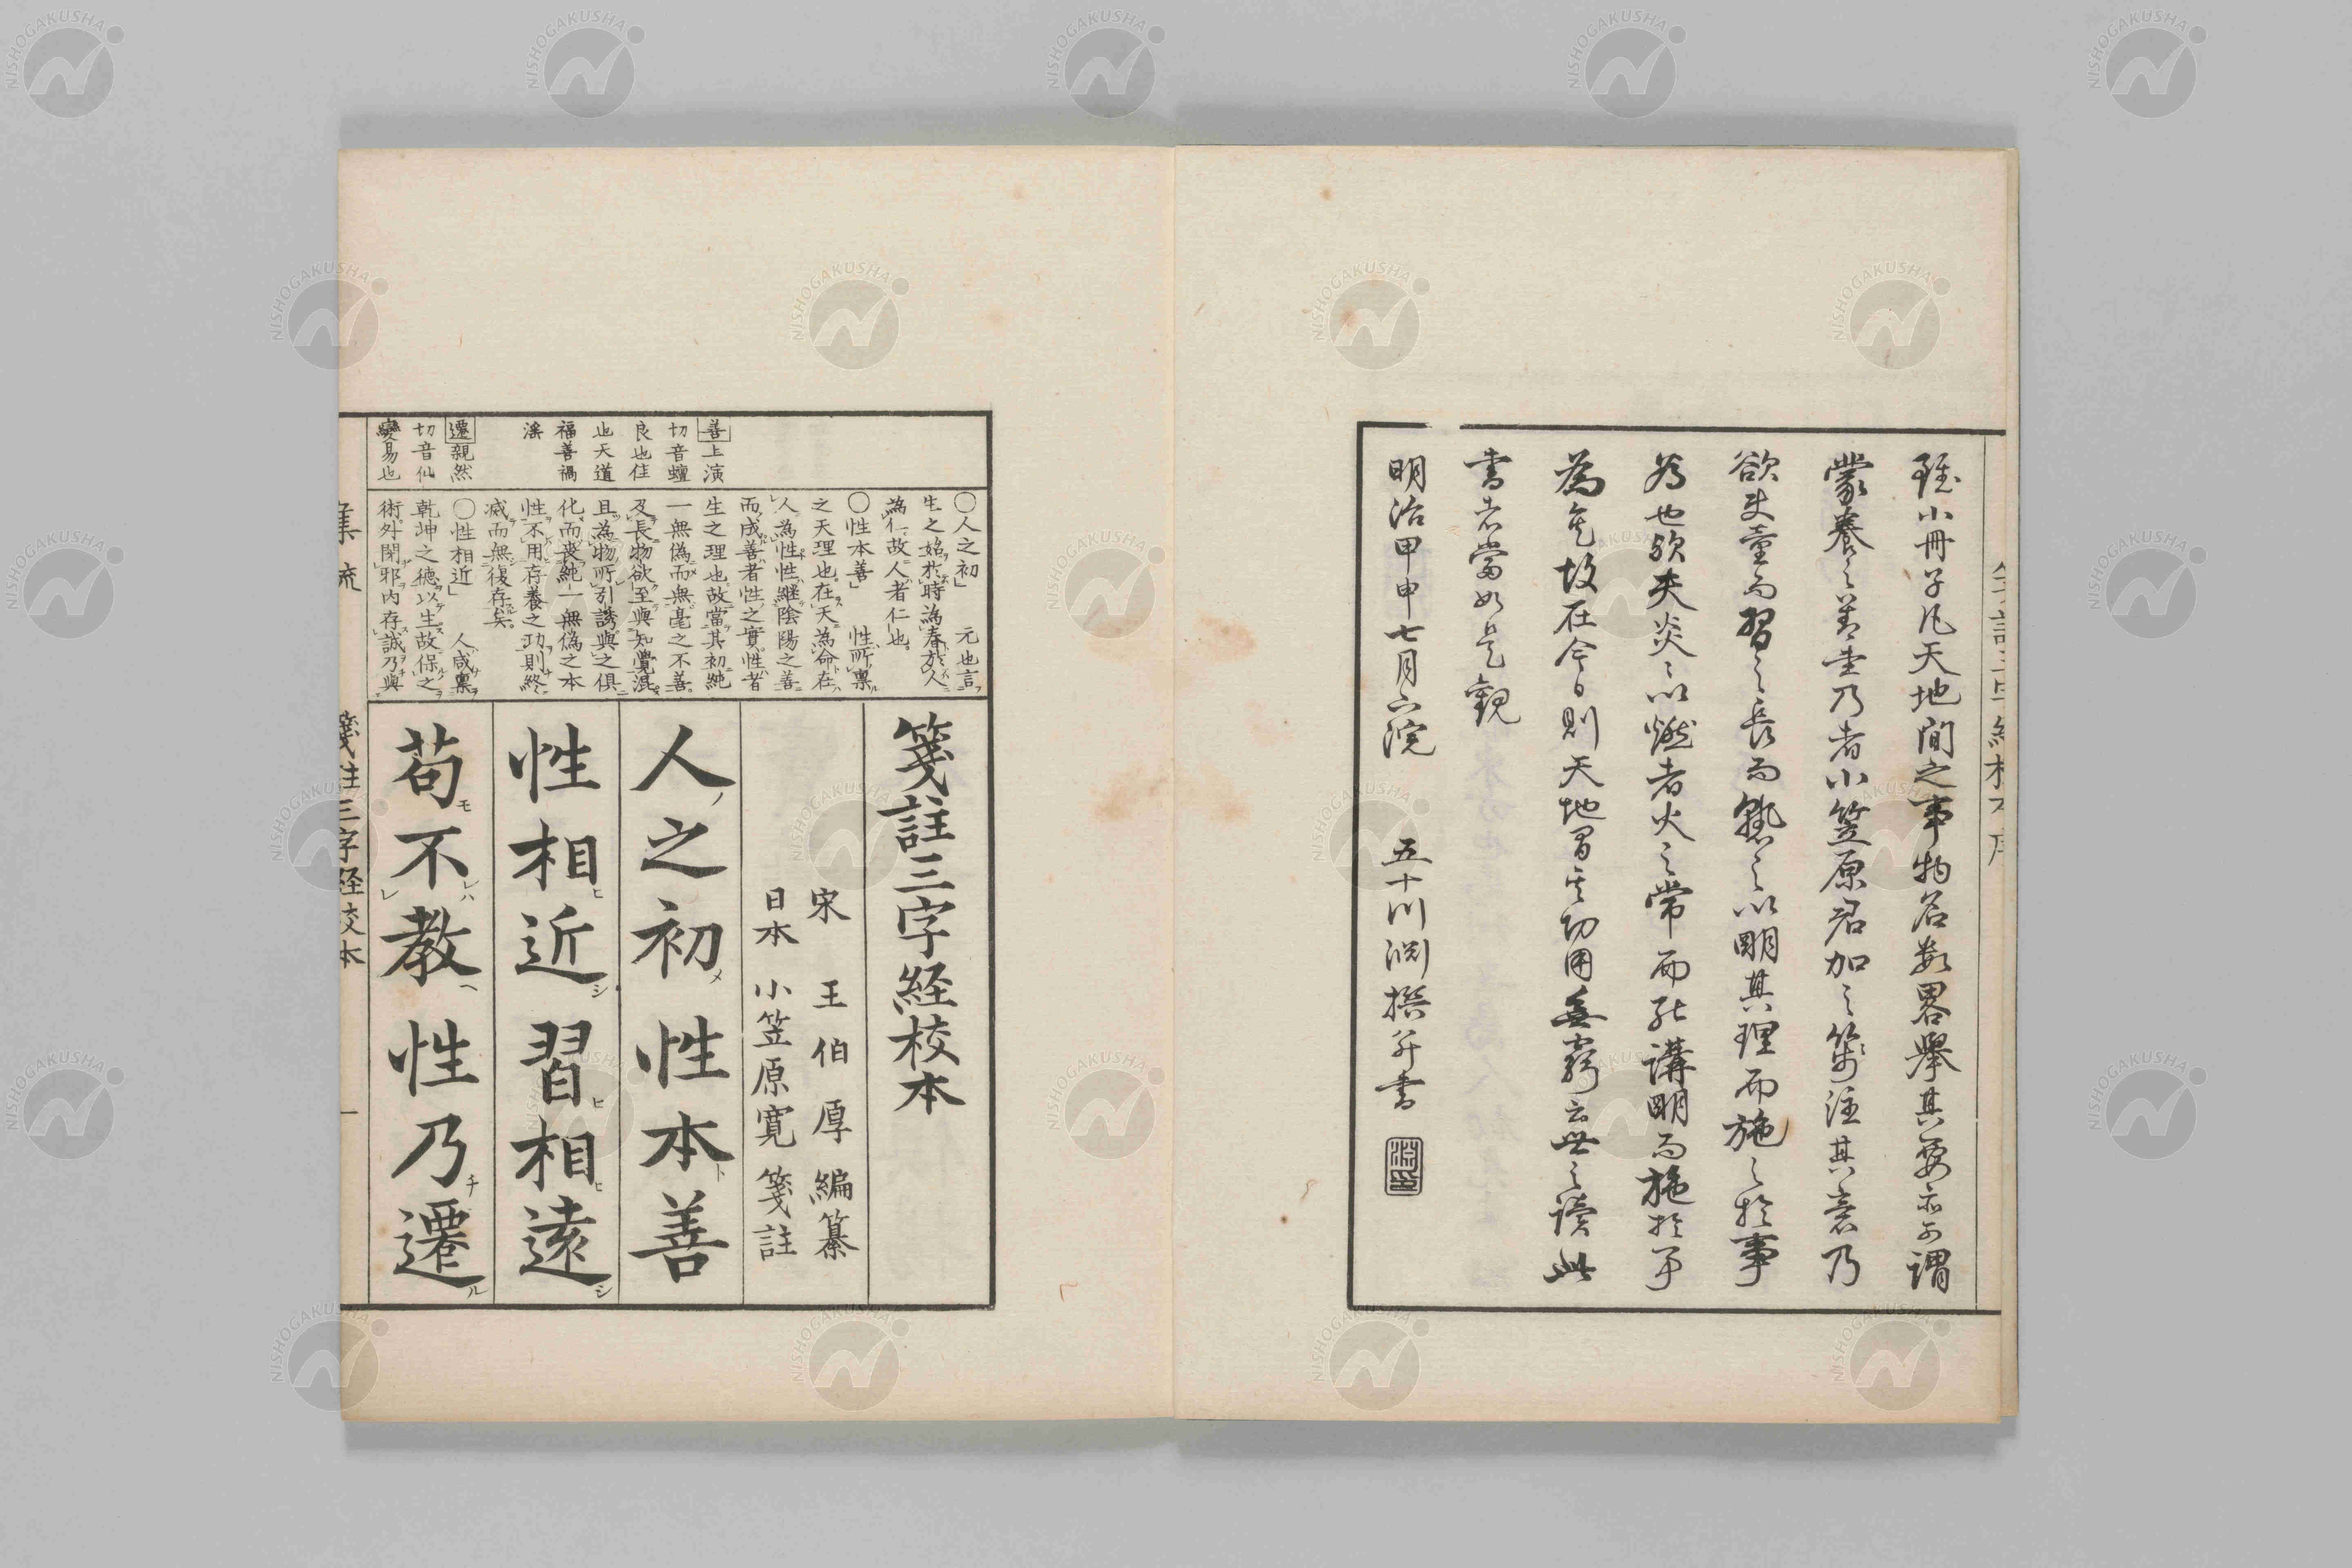 雖小冊子凡天地間之事物名数畧舉其要亦可謂
蒙養之善書乃者小笠原君加之箋注其意乃
欲使童而習之長而熟之以明其理而施之於事
為也欤夫炎之以燃者火之常而能講明而施於事
為矣故在今日則天地間其功用無窮云世之讀此
書者當如是觀
明治甲申七月六浣 五十川渊撰并書
箋註三字経校本
宋 王伯厚 編纂
日本 小笠原寛 箋註
人之初 性本善
性相近 習相遠
苟不教 性乃遷
善上演
切音蟺
良也佳
也天道
福善禍
滛
遷親然
切音仙
變易也
〇人之初」 元也言
生之始於時為春於人
為仁故人者仁也
〇性本善」 性所禀
之天理也在天為命在
人為性性継陰陽之善
而成善者性之實性者
生之理也故當其初純
一無偽而無毫之不善
及長物欲至與知覺混
且為物所引誘與之俱
化而喪純一無偽之本
性不用存養之功則終
滅而無復存矣
〇性相近」 人咸禀
乾坤之德以生故保之
術外閑邪内存誠乃與
箋註三字経校本
一
NISHOGAKUSHA